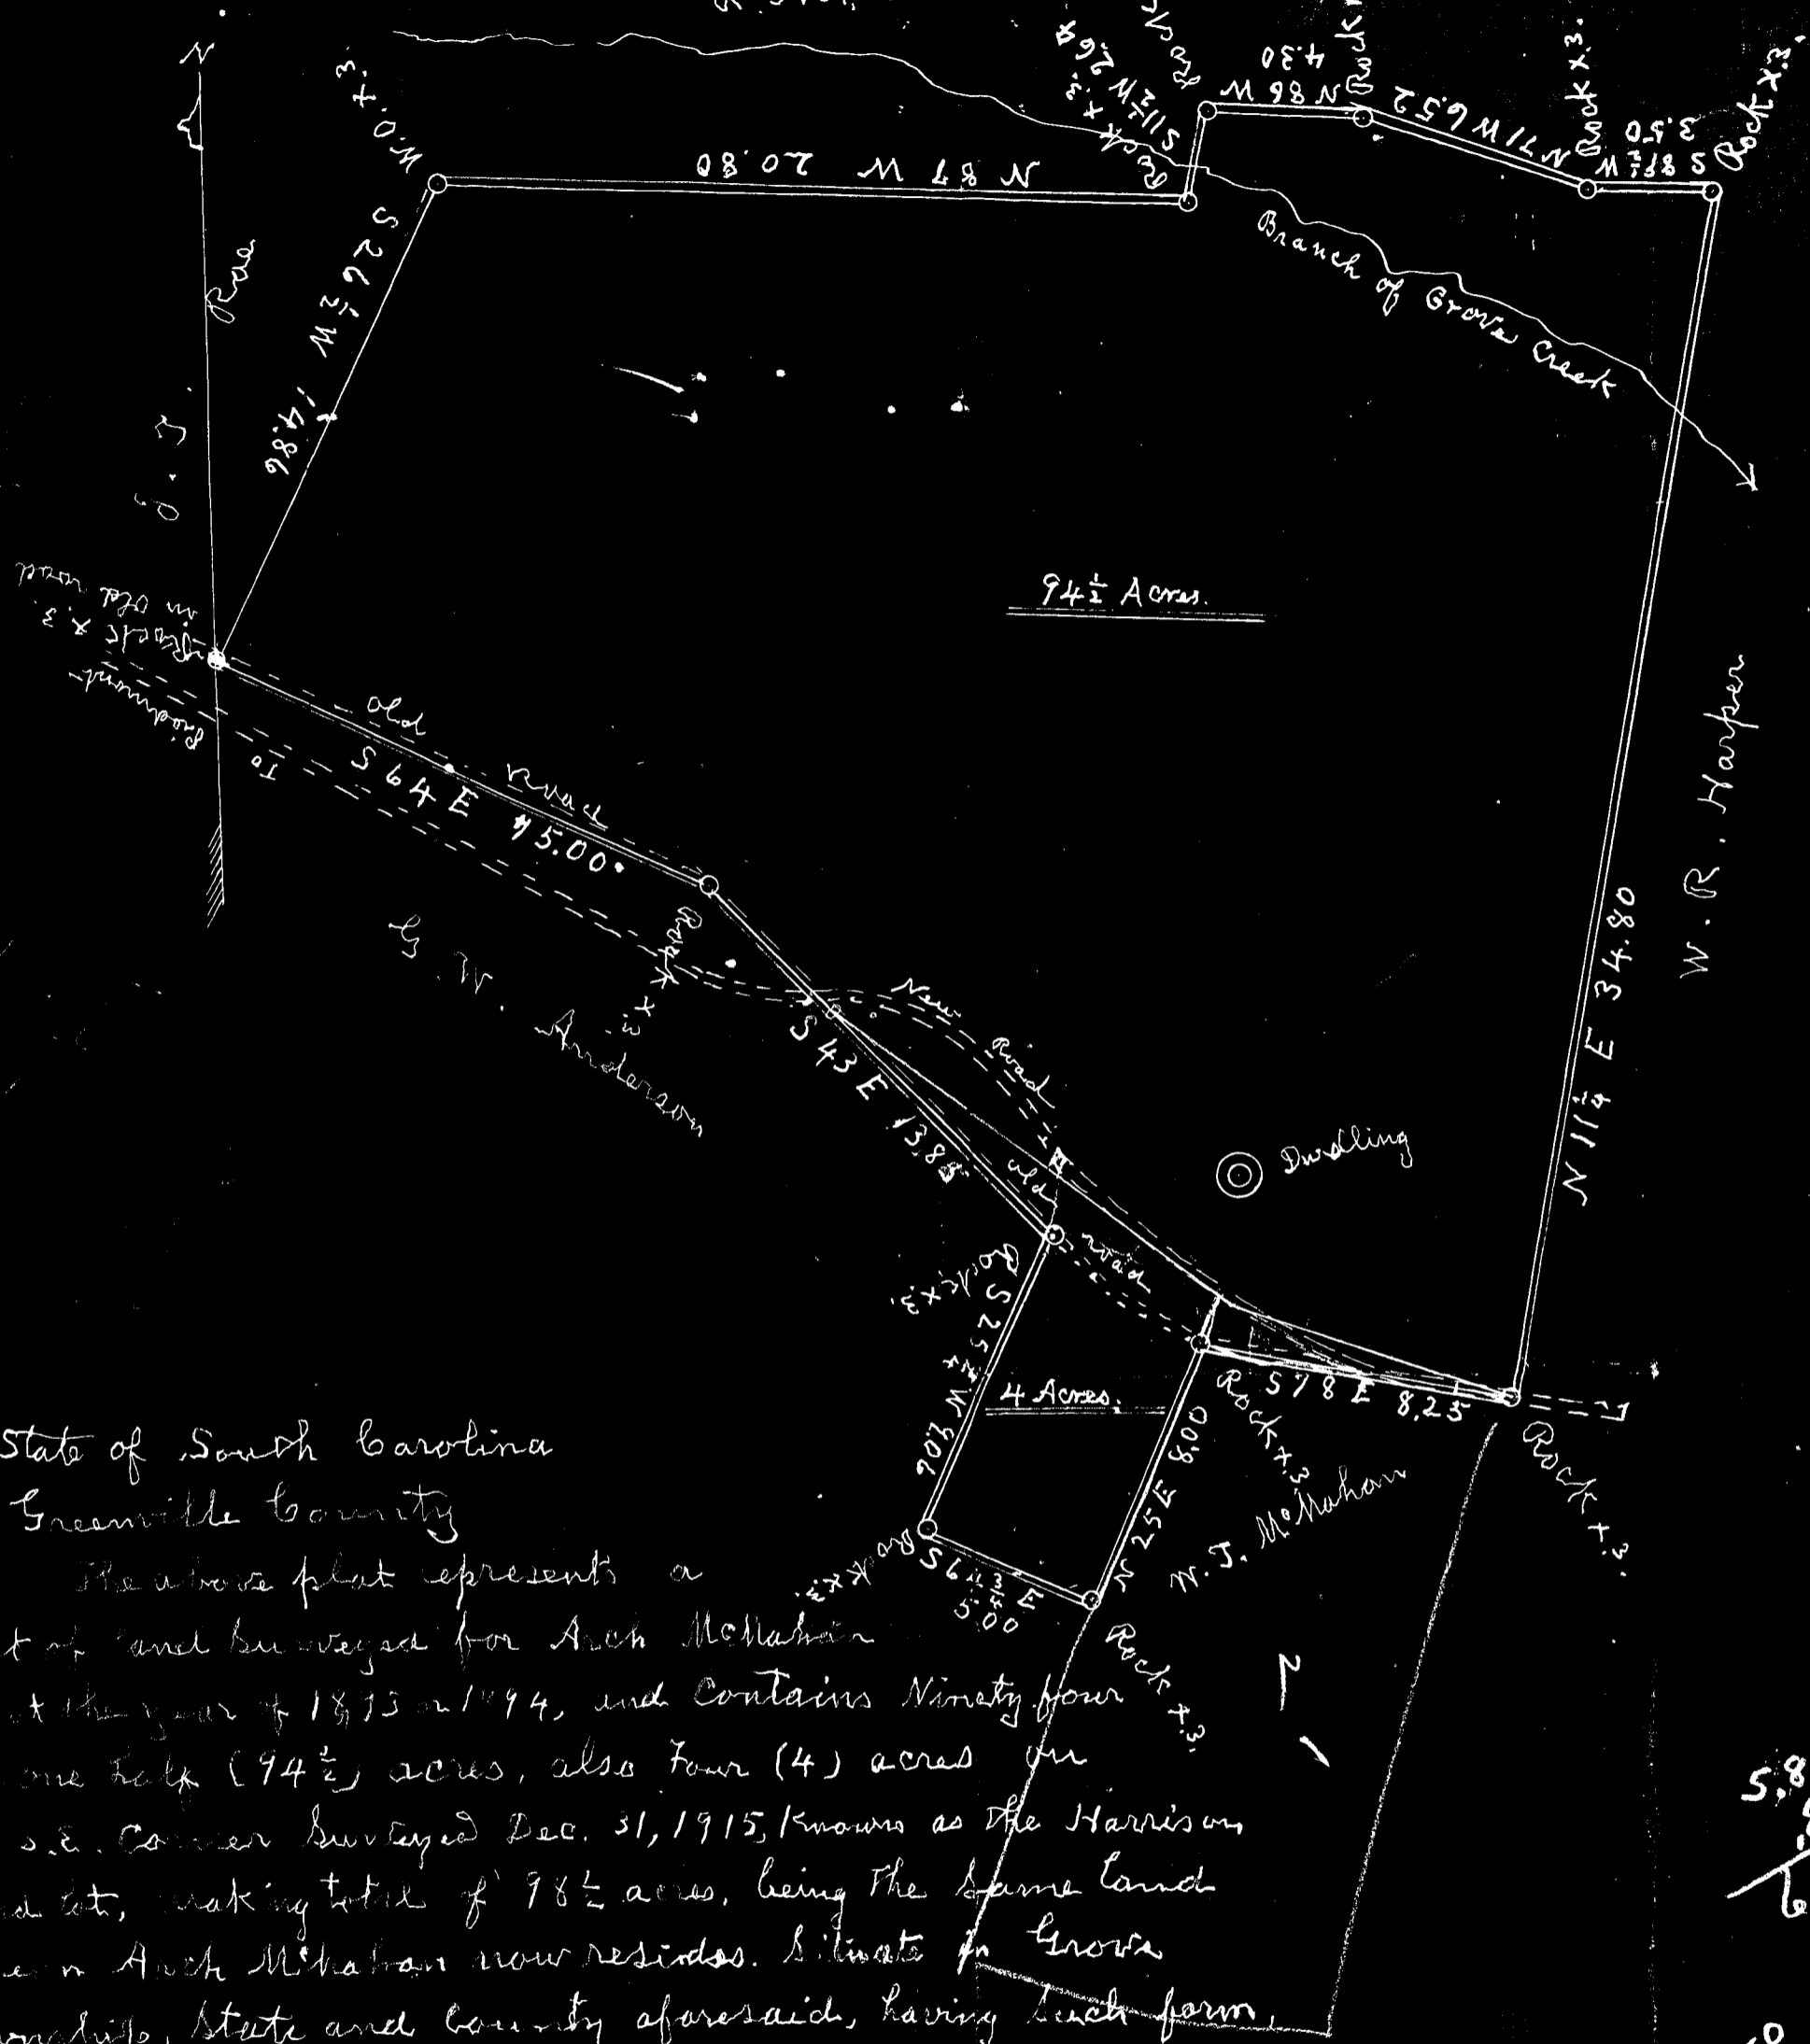 N
W.O. x.3.
N 87 W 20.80
Rock x.3.
S 11 1/2 W 2.62
N 86 W
4.30
N 71 W 6.52
Rock x.3.
S 89 1/2 W
3.50
Rock x.3.
S 26 1/2 W 14.86
Branch of Grove Creek
94 1/2 Acres.
W. R. Harper
N 11 1/4 E 34.80
Rock x.3.
in old road
To Piedmont
Old Road
S 64 E 15.00
Rock x.3.
G. W. Anderson
New Road
S 43 E 13.85
old road
Dwelling
Rock x.3.
S 25 1/4 W 9.06
4 Acres.
N 25 E 8.00
Rock x.3.
S 78 E 8.25
Rock x.3.
W. J. McMahan
Rock x.3.
S 64 3/4 E
5.00
Rock x.3.
State of South Carolina
Greenville County
The above plat represents a
t of land Surveyed for Arch McMahan
t the year of 1893 or 1894, and Contains Ninety four
one half (94 1/2) acres, also Four (4) acres on
S.E. Corner Surveyed Dec. 31, 1915, Known as the Harrison
lot, making total of 98 1/2 acres, being the Same land
Arch McMahan now resides. Situate in Grove
State and County aforesaid, having such form,